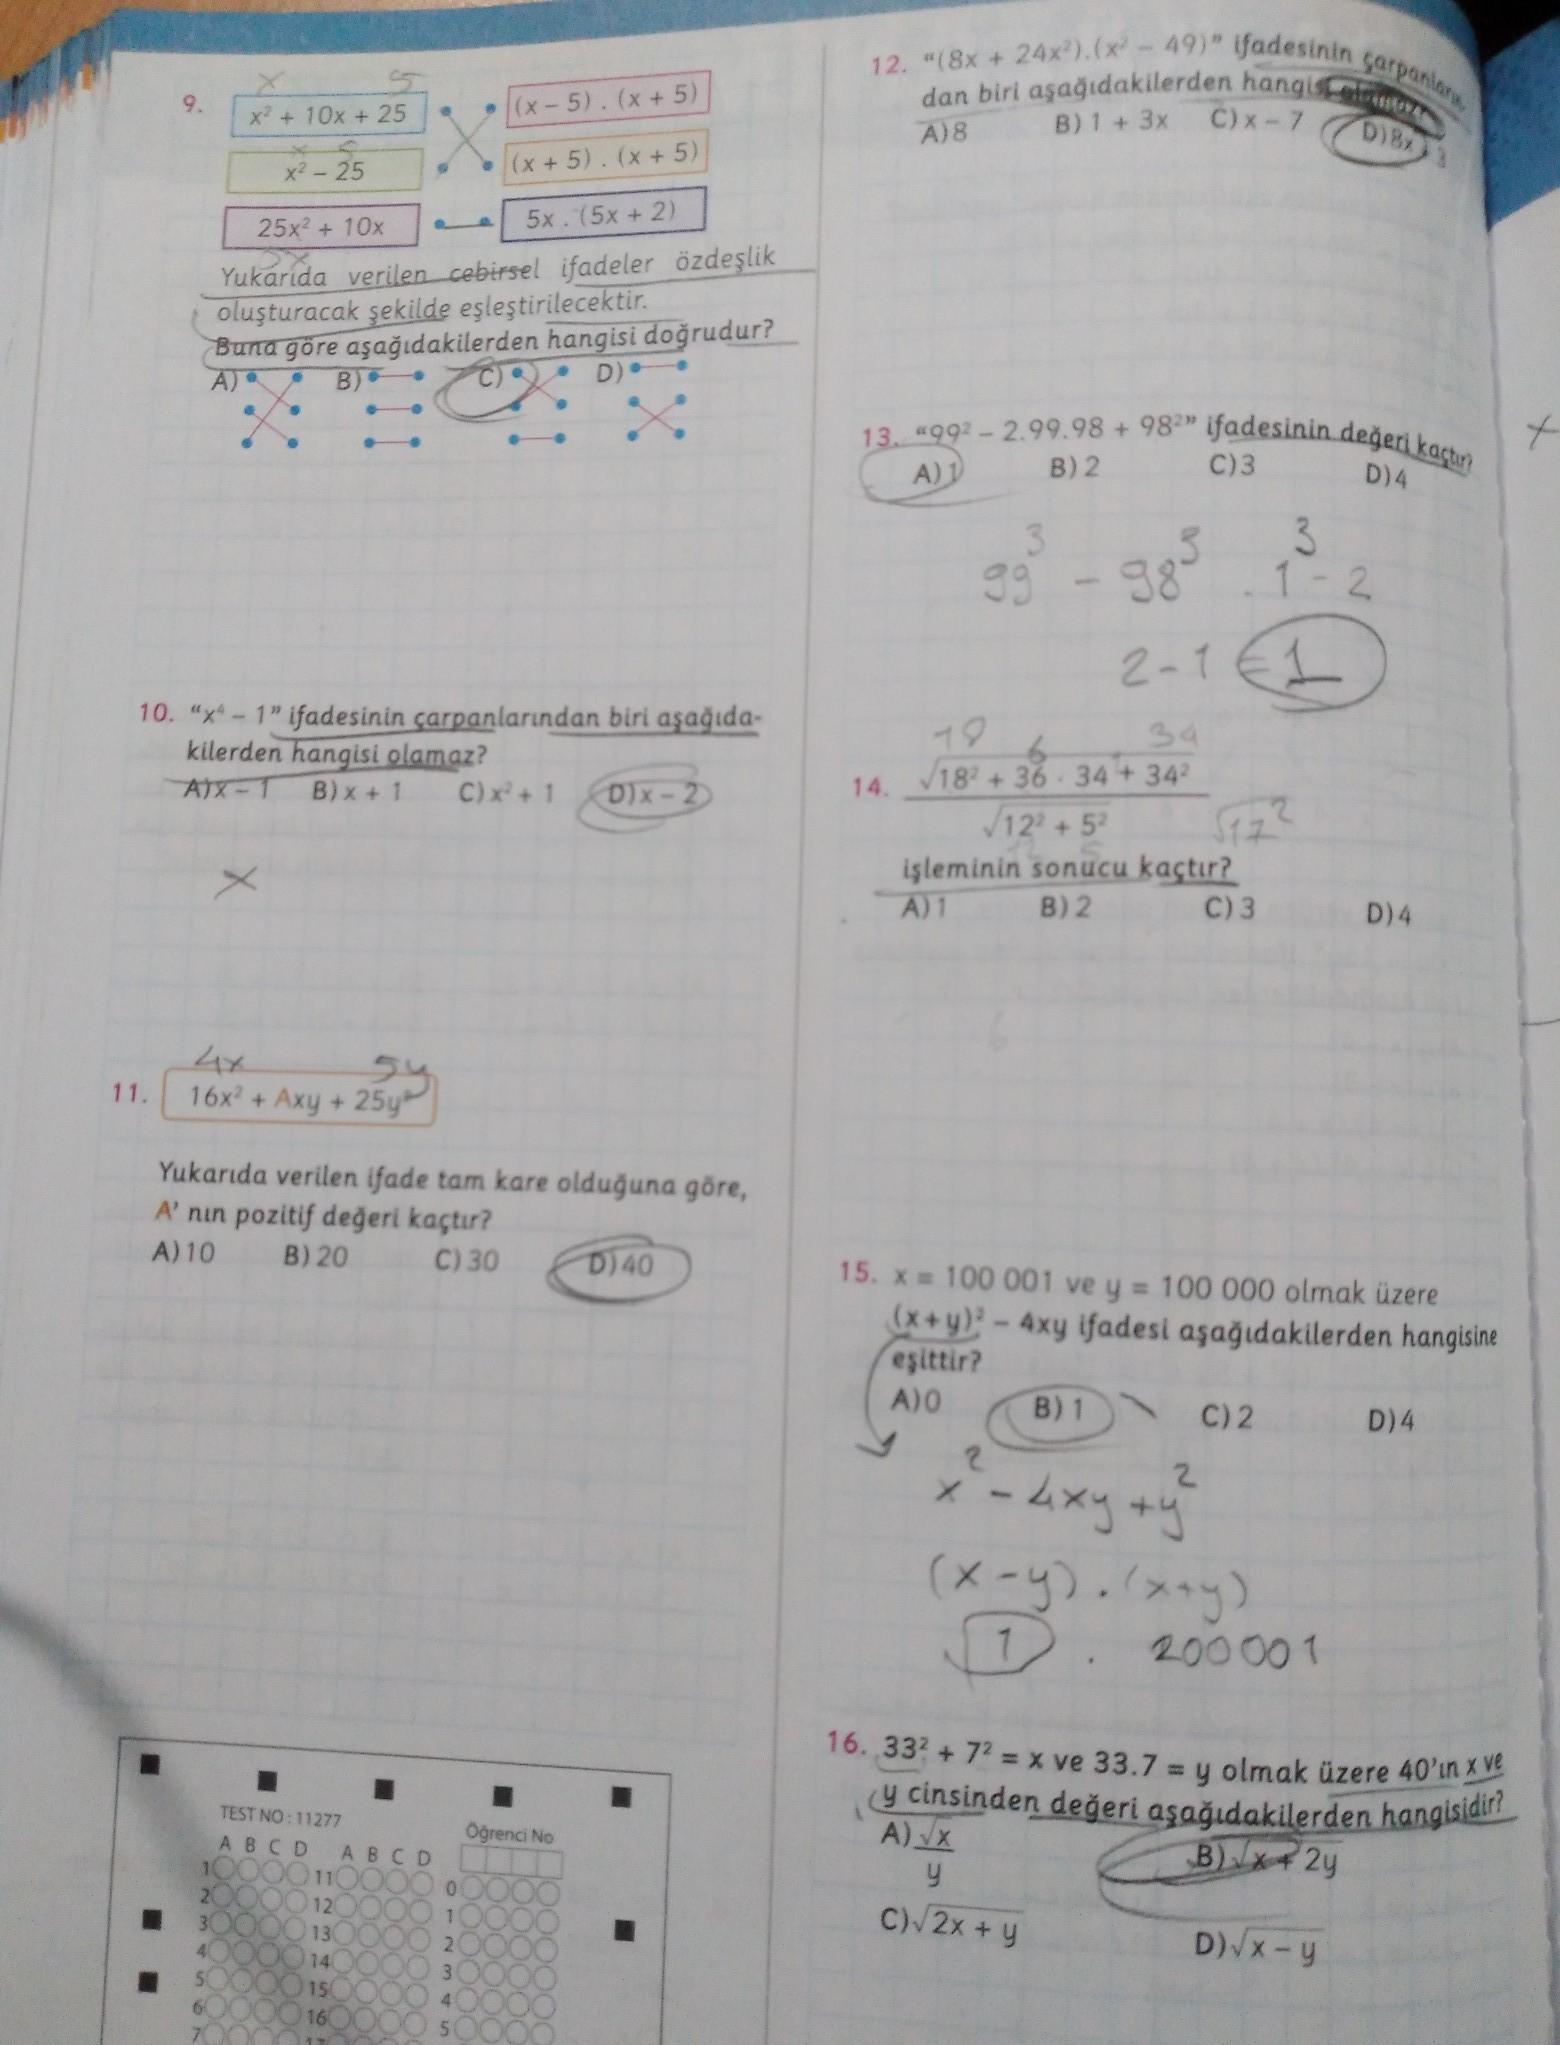 9.
x 5
x² + 10x + 25
(x – 5) . (x + 5)
x 5
x² – 25
(x + 5) . (x + 5)
25x² + 10x
5x . (5x + 2)
5x
Yukarıda verilen cebirsel ifadeler özdeşlik
oluşturacak şekilde eşleştirilecektir.
Buna göre aşağıdakilerden hangisi doğrudur?
A) B) C) D)
10. “x⁴ – 1” ifadesinin çarpanlarından biri aşağıda-
kilerden hangisi olamaz?
A) x – 1 B) x + 1 C) x² + 1 D) x – 2
x
4x 5y
11. 16x² + Axy + 25y²
Yukarıda verilen ifade tam kare olduğuna göre,
A’ nın pozitif değeri kaçtır?
A) 10 B) 20 C) 30 D) 40
TEST NO : 11277
Öğrenci No
A B C D A B C D
1 11 0
2 12 1
3 13 2
4 14 3
5 15 4
6 16 5
7 17
12. “(8x + 24x²).(x² – 49)” ifadesinin çarpanların-
dan biri aşağıdakilerden hangisi olamaz?
A) 8 B) 1 + 3x C) x – 7 D) 8x
13. “99² – 2.99.98 + 98²” ifadesinin değeri kaçtır?
A) 1 B) 2 C) 3 D) 4
99³ – 98³ . 1³ – 2
2 – 1 = 1
6 34
14. √18² + 36 . 34 + 34²
√12² + 5²
√17²
işleminin sonucu kaçtır?
A) 1 B) 2 C) 3 D) 4
15. x = 100 001 ve y = 100 000 olmak üzere
(x + y)² – 4xy ifadesi aşağıdakilerden hangisine
eşittir?
A) 0 B) 1 C) 2 D) 4
x² – 4xy + y²
(x – y) . (x + y)
1 . 200001
16. 33² + 7² = x ve 33.7 = y olmak üzere 40’ın x ve
y cinsinden değeri aşağıdakilerden hangisidir?
A) √x
y
B) √x + 2y
C) √2x + y
D) √x – y